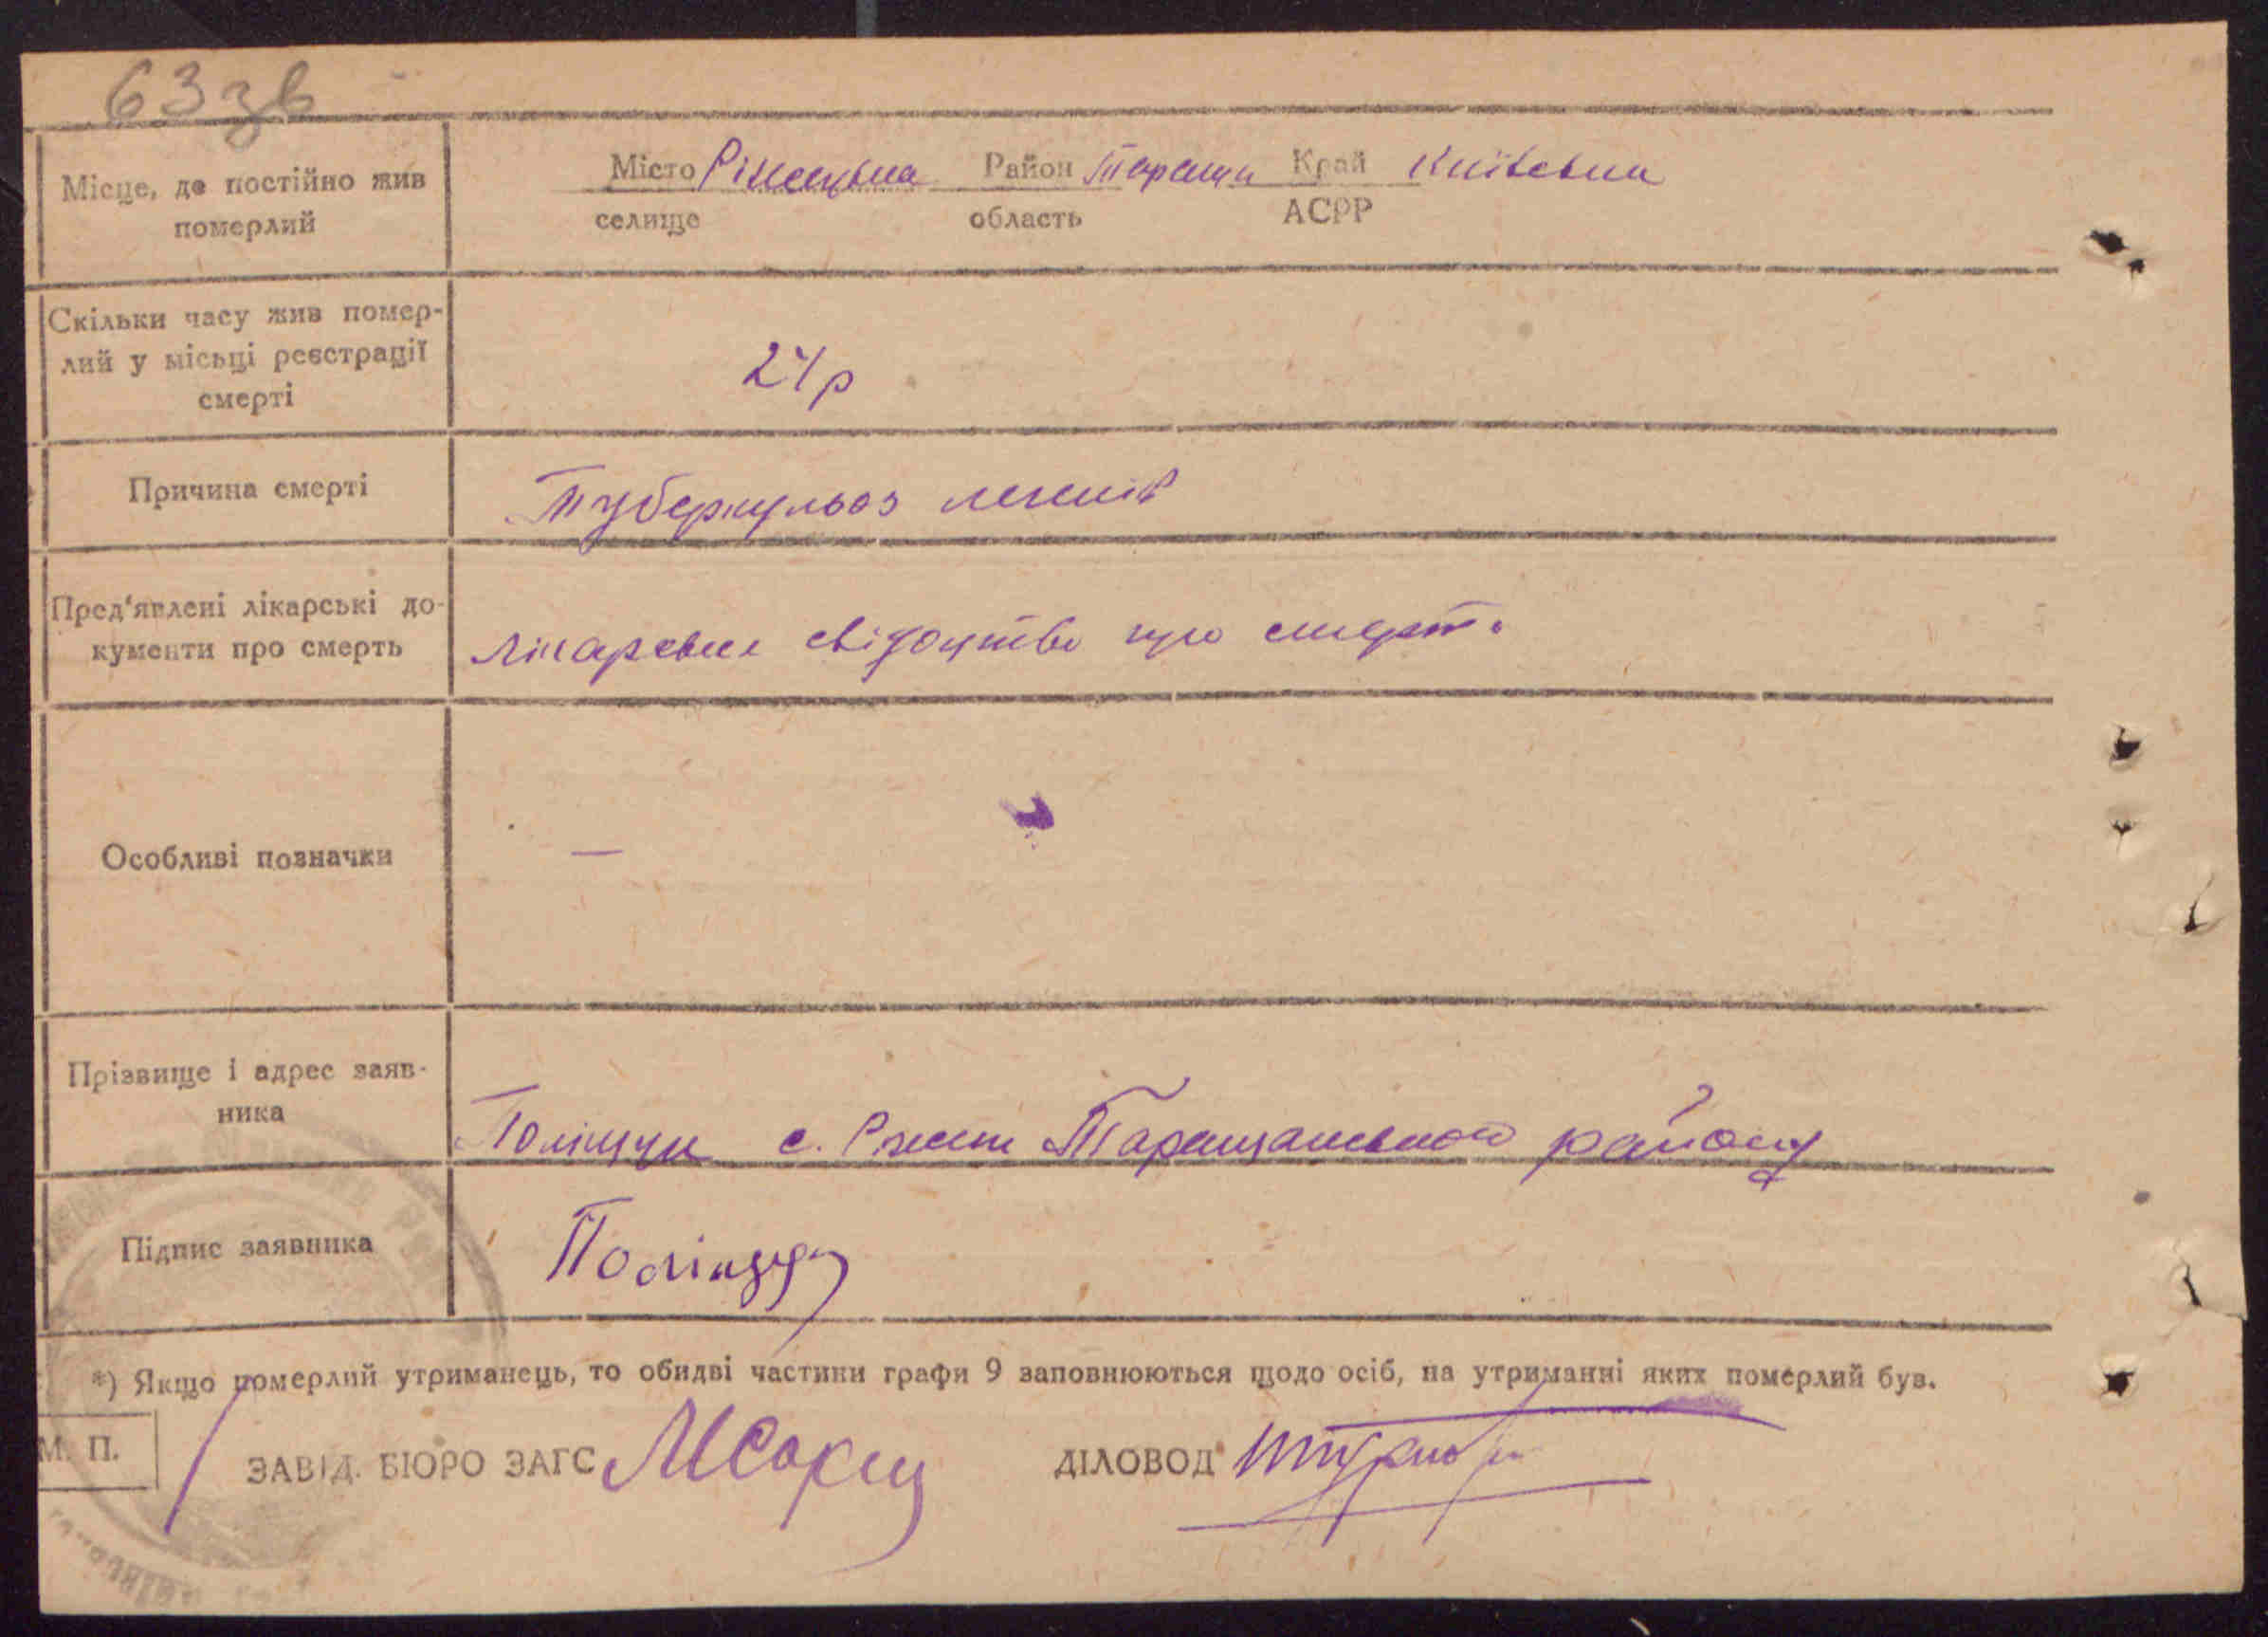 63 зв
Місце, де постійно жив
померлий
Місто Район Тараща Край Київська
селище область АСРР
Скільки часу жив помер-
лий у місьці реєстрації
смерті
24 р
Причина смерті
Туберкульоз легенів
Пред'явлені лікарські до-
кументи про смерть
Лікарське свідоцтво про смерть
Особливі позначки
—
Прізвище і адрес заяв-
ника
Поліщук с. Таращанського району
Підпис заявника
Поліщук
*) Якщо померлий утриманець, то обидві частини графи 9 заповнюються щодо осіб, на утриманні яких померлий був.
М. П.
ЗАВІД. БЮРО ЗАГС ДІЛОВОД